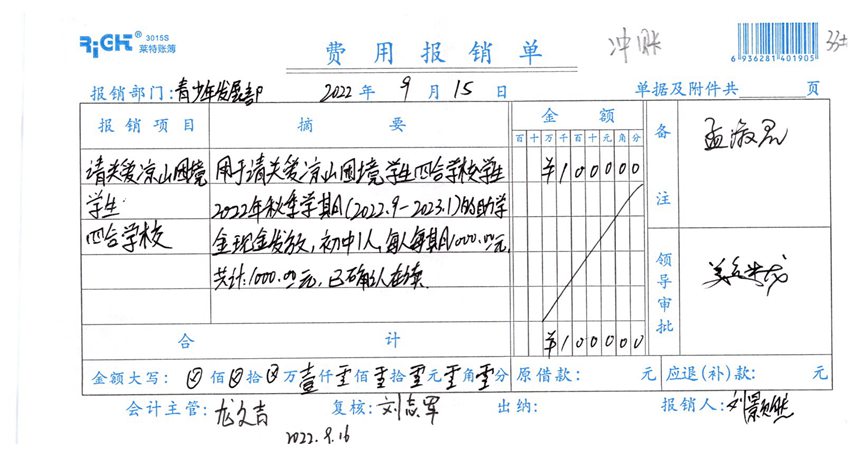 RiGHT® 3015S
莱特账簿
费用报销单
冲账
6 936281 401905
报销部门:青少年发展部 2022年9月15日 单据及附件共 页
报销项目 摘要 金额 备注
百十万千百十元角分
请关爱凉山困境 用于请关爱凉山困境学生四合学校学生 ¥100000
学生 2022年秋季学期(2022.9-2023.1)的助学
四合学校 金现金发放,初中1人,每人每期1000.00元,
共计:1000.00元,已确认在读.
领导审批
合计 ¥100000
金额大写:⊗佰⊗拾⊗万壹仟零佰零拾零元零角零分 原借款: 元 应退(补)款: 元
会计主管:龙文吉 复核:刘志军 出纳: 报销人:刘景然
2022.9.16